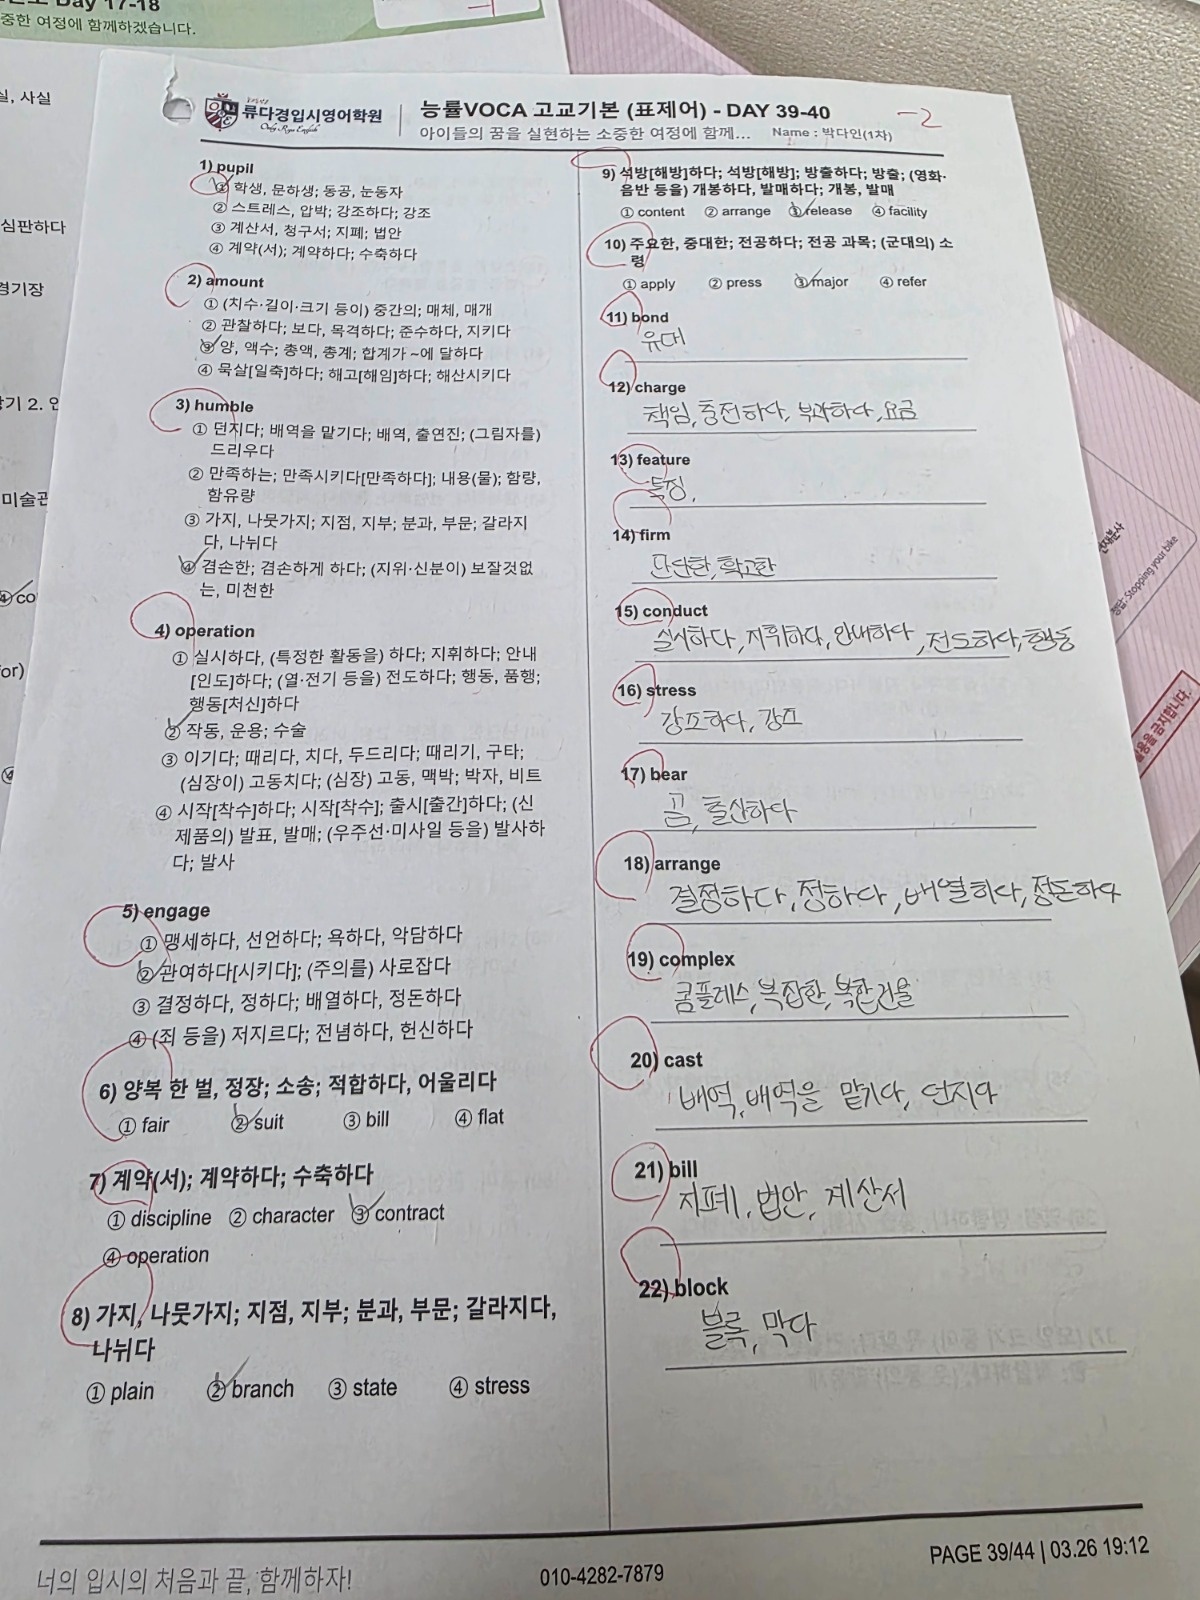 Day 17-18
중한 여정에 함께하겠습니다.
실, 사실
심판하다
경기장
미술관
류다경입시영어학원
Only Ryu English
능률VOCA 고교기본 (표제어) - DAY 39-40
-2
아이들의 꿈을 실현하는 소중한 여정에 함께...
Name : 박다인(1차)
1) pupil
① 학생, 문하생; 동공, 눈동자
② 스트레스, 압박; 강조하다; 강조
③ 계산서, 청구서; 지폐; 법안
④ 계약(서); 계약하다; 수축하다
2) amount
① (치수·길이·크기 등이) 중간의; 매체, 매개
② 관찰하다; 보다, 목격하다; 준수하다, 지키다
③ 양, 액수; 총액, 총계; 합계가 ~에 달하다
④ 묵살[일축]하다; 해고[해임]하다; 해산시키다
3) humble
① 던지다; 배역을 맡기다; 배역, 출연진; (그림자를)
드리우다
② 만족하는; 만족시키다[만족하다]; 내용(물); 함량,
함유량
③ 가지, 나뭇가지; 지점, 지부; 분과, 부문; 갈라지
다, 나뉘다
④ 겸손한; 겸손하게 하다; (지위·신분이) 보잘것없
는, 미천한
4) operation
① 실시하다, (특정한 활동을) 하다; 지휘하다; 안내
[인도]하다; (열·전기 등을) 전도하다; 행동, 품행;
행동[처신]하다
② 작동, 운용; 수술
③ 이기다; 때리다, 치다, 두드리다; 때리기, 구타;
(심장이) 고동치다; (심장) 고동, 맥박; 박자, 비트
④ 시작[착수]하다; 시작[착수]; 출시[출간]하다; (신
제품의) 발표, 발매; (우주선·미사일 등을) 발사하
다; 발사
5) engage
① 맹세하다, 선언하다; 욕하다, 악담하다
② 관여하다[시키다]; (주의를) 사로잡다
③ 결정하다, 정하다; 배열하다, 정돈하다
④ (죄 등을) 저지르다; 전념하다, 헌신하다
6) 양복 한 벌, 정장; 소송; 적합하다, 어울리다
① fair ② suit ③ bill ④ flat
7) 계약(서); 계약하다; 수축하다
① discipline ② character ③ contract
④ operation
8) 가지, 나뭇가지; 지점, 지부; 분과, 부문; 갈라지다,
나뉘다
① plain ② branch ③ state ④ stress
9) 석방[해방]하다; 석방[해방]; 방출하다; 방출; (영화·
음반 등을) 개봉하다, 발매하다; 개봉, 발매
① content ② arrange ③ release ④ facility
10) 주요한, 중대한; 전공하다; 전공 과목; (군대의) 소
령
① apply ② press ③ major ④ refer
11) bond
유대
12) charge
책임, 충전하다, 부과하다, 요금
13) feature
특징,
14) firm
단단한, 확고한
15) conduct
실시하다, 지휘하다, 안내하다, 전도하다, 행동
16) stress
강조하다, 강조
17) bear
곰, 출산하다
18) arrange
결정하다, 정하다, 배열하다, 정돈하다
19) complex
콤플레스, 복잡한, 복합건물
20) cast
배역, 배역을 맡기다, 던지다
21) bill
지폐, 법안, 계산서
22) block
블록, 막다
너의 입시의 처음과 끝, 함께하자!
010-4282-7879
PAGE 39/44 | 03.26 19:12
정답: Stopping your bike
활용을 금지합니다.